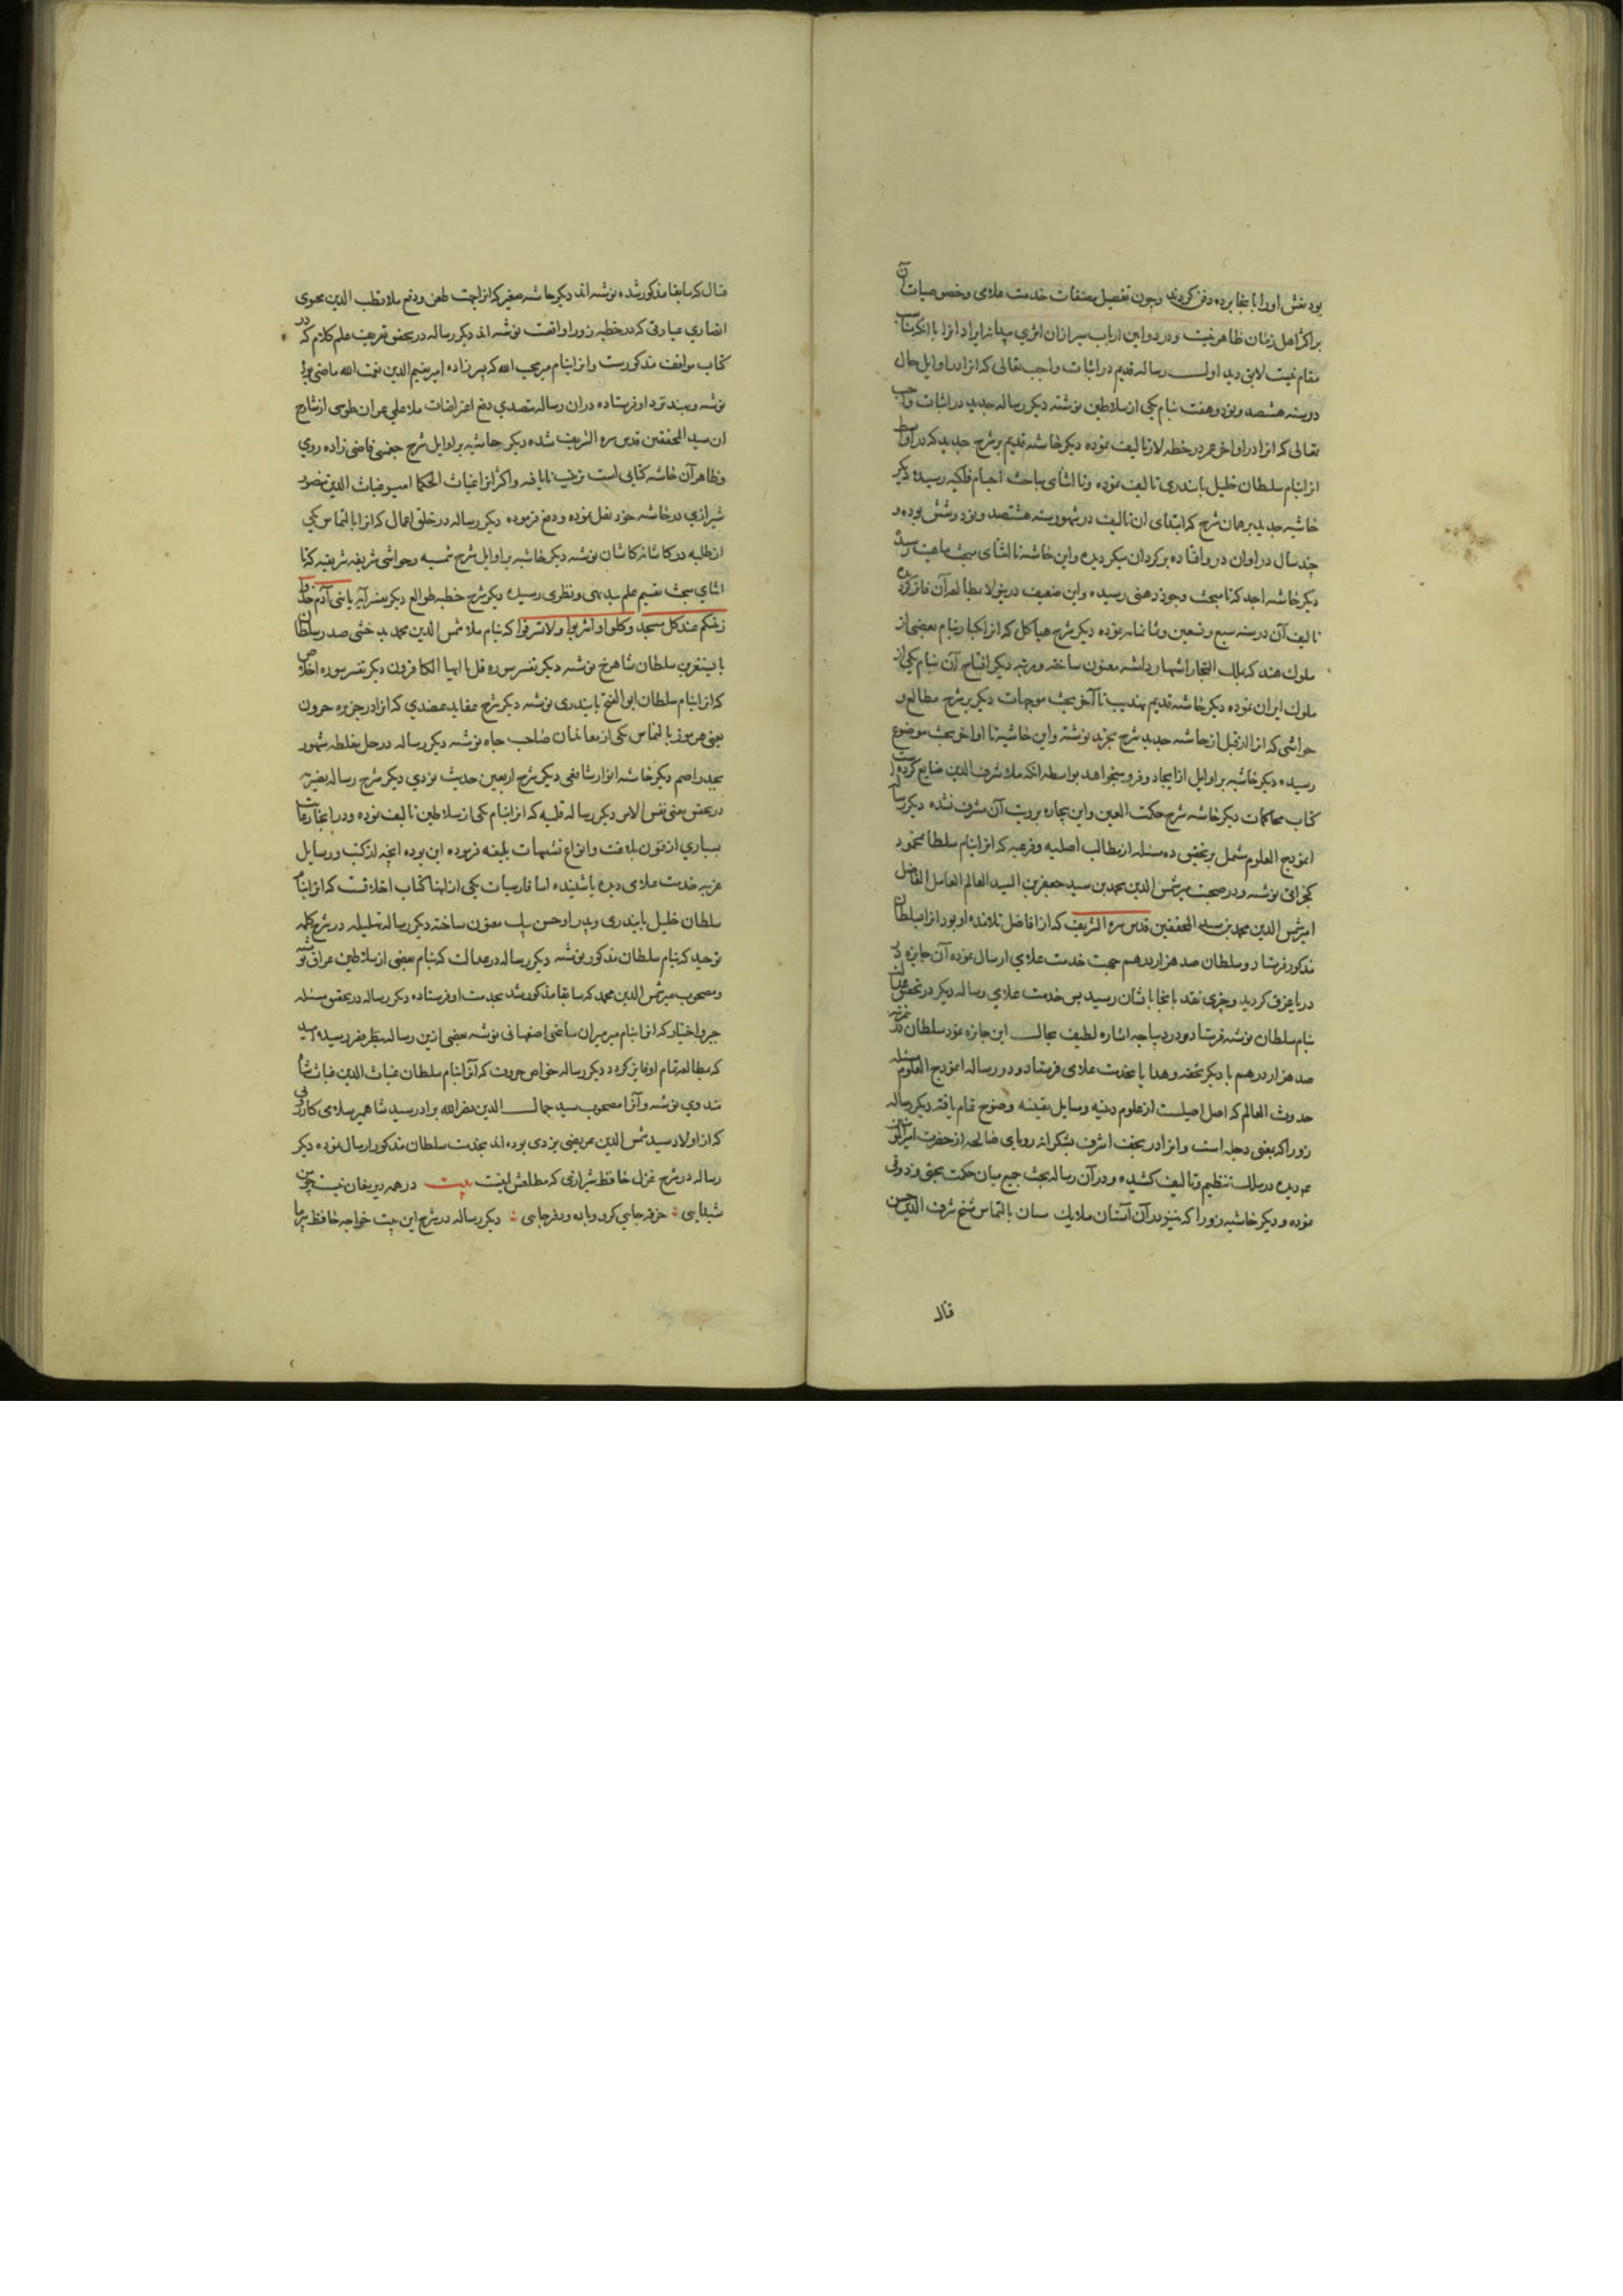 بود نعش او را بانجا برده دفن کردند و چون تفصیل مصنفات خدمت علامی و خصوصیات آن
بر اکثر اهل زمان ظاهر نیست و در دواوین ارباب سیر ازان اثری پیدا نه ایراد انرا با آنکه مناسب
مقام نیست لایق دید اول رساله قدیم در اثبات واجب تعالی که انرا در اوایل حال
در سنه هشتصد و نود و هفت بنام یکی از سلاطین نوشته دیگر رساله جدید در اثبات واجب
تعالی که انرا در اواخر عمر در خطه لار تالیف نموده دیگر حاشیه قدیم بر شرح جدید که در اواسط
انرا بنام سلطان خلیل بایندری تالیف نموده و تا اثنای مباحث اجسام فلکیه رسیده دیگر
حاشیه جدید بر همان شرح که ابتدای ان تالیف در شهور سنه هشتصد و نود و شش بوده و
چند سال در اوان در وافتاده بر کردان میکردیده و این حاشیه تا اثنای مبحث ماهیت رسیده
دیگر حاشیه اجد که تا مبحث وجود ذهنی رسیده و این ضعیف در یزد لا مطالعه آن فائز کرده
تالیف آن در سنه سبع و تسعین و ثمانمایه نموده دیگر شرح هیاکل که انرا یکبار بنام بعضی از
ملوک هند که بملک التجار اشتهار داشته معنون ساخته و مرتبه دیگر افتتاح آن بنام یکی از
ملوک ایران نموده دیگر حاشیه قدیم تهذیب تا آخر بحث موجهات دیگر بر شرح مطالع و
حواشی که انرا از قبل از حاشیه جدید شرح تجرید نوشته و این حاشیه تا اواخر بحث موضوع
رسیده دیگر حاشیه بر اوایل از ایجاد و فرو میخواهد بواسطه انکه ملا شرف الدین ضایع کرده
کتاب محاکمات دیگر حاشیه شرح حکمت العین و این بیچاره برویت آن مشرف نشده دیگر رساله
انموذج العلوم مشتمل بر تحقیق ده مسئله از مطالب اصلیه و فرعیه که انرا بنام سلطان محمود
کجراتی نوشته و در صحبت میر شمس الدین محمد بن سید جعفر بن السید العالم العامل الفاضل
امیر شمس الدین محمد بن سید المحققین قدس سره الشریف که از افاضل تلامذه او بود انرا بسلطان
مذکور فرستاد و سلطان صد هزار درهم جهت خدمت علامی ارسال نموده آن جایزه در
دریا غرق کردید و چیزی نقد بانجا بانشان رسید پس خدمت علامی رساله دیگر در تحقیق عدالت
بنام سلطان نوشته فرستاد و در دیباجه اشاره لطیف بحال این جایزه نمود سلطان دو مرتبه
صد هزار درهم با دیگر تحفه و هدایا بخدمت علامی فرستاد و در رساله انموذج العلوم مسئله
حدوث العالم که اصل اصیلست از علوم دینیه و مسایل یقینیه وضوح تمام یافته دیگر رساله
زورا که یعنی دجله است و انرا در نجف اشرف بشکرانه رویای صالحه از حضرت امیر المومنین
عم دیده در سلک تنظیم و تالیف کشیده و در آن رساله بحث جمع میان حکمت بحثی و ذوقی
نموده و دیگر حاشیه زورا که نیز در آن آستان ملایک سان بالتماس شیخ شرف الدین حسن
فتال
فتال که سابقا مذکور شده نوشته اند دیگر حاشیه صغیر که انرا جهت طعن و دفع ملا قطب الدین محیوی
انصاری عبارتی که در خطبه زورا واقعت نوشته اند دیگر رساله در تحقیق تعریف علم کلام که در
کتاب مواقف مذکورست و انرا بنام میر محب الله که پسر زاده امیر نعیم الدین نعمت الله ماضی بود
نوشته و بهند نزد او فرستاده دران رساله متصدی دفع اعتراضات ملا علی عمران طوسی از شارح
ان سید المحققین قدس سره الشریف شده دیگر حاشیه بر اوایل شرح چغمینی قاضی زاده رومی
و ظاهر آن حاشیه کتابی است ترتیب نایافته و اکثر انرا غیاث الحکما امیر غیاث الدین منصور
شیرازی در حاشیه خود نقل نموده و دفع فرموده دیگر رساله در خلق اعمال که انرا بالتماس یکی
از طلبه در کاشانه کاشان نوشته دیگر حاشیه بر اوایل شرح شمسیه و حواشی شریفه شریفیه که تا
اثنای مبحث تقسیم علم ببدیهی و نظری رسیده دیگر شرح خطبه طوالع دیگر تفسیر آیه یا بنی آدم خذوا
زینتکم عند کل مسجد و کلوا و اشربوا و لا تسرفوا که بنام ملا شمس الدین محمد بدخشی صدر سلطان
بایسنغر بن سلطان شاهرخ نوشته دیگر تفسیر سوره قل یا ایها الکافرون دیگر تفسیر سوره اخلاص
که انرا بنام سلطان ابو الفتح بایندری نوشته دیگر شرح عقاید عضدی که انرا در جزیره جرون
یعنی هرموز بالتماس یکی از معاشان صاحب جاه نوشته دیگر رساله در حل مغلطه مشهور
بجذر اصم دیگر حاشیه انوار شافعی دیگر شرح اربعین حدیث نووی دیگر شرح رساله نصیریه
در تحقیق معنی نفس الامر دیگر رساله قلمیه که انرا بنام یکی از سلاطین تالیف نموده و در انجا رعایت
بسیاری از فنون بلاغت و انواع تشبیهات بلیغه فرموده این بوده انچه از کتب و رسایل
عربیه خدمت علامی دیده یا شنیده اما فارسیات یکی از انها کتاب اخلاقست که انرا بنام
سلطان خلیل بایندری و پدر او حسن بیک معنون ساخته دیگر رساله تهلیلیه در شرح کلمه
توحید که بنام سلطان مذکور نوشته دیگر رساله در عدالت که بنام بعضی از سلاطین عراق نوشته
و مصحوب میر شمس الدین محمد که سابقا مذکور شد بخدمت او فرستاده دیگر رساله در تحقیق مسئله
جبر و اختیار که انرا بنام میر میران ساعی اصفهانی نوشته بعضی ازین رساله بنظر فقیر رسیده امید
که مطالعه تمام او فایز کردد دیگر رساله خواص حروف که آنرا بنام سلطان غیاث الدین غیاث شاه
مندوی نوشته و آنرا مصحوب سید جمال الدین نصر الله برادر سید شاهمیر سلامی کازرونی
که از اولاد سید شمس الدین عریضی یزدی بوده اند بخدمت سلطان مذکور ارسال نموده دیگر
رساله در شرح غزل حافظ شیرازی که مطلعش اینست بیت در همه دیر مغان نیست چو من
شیدایی خرقه جایی کرو و باده و دفتر جایی دیگر رساله در شرح این بیت خواجه حافظ پیر ما